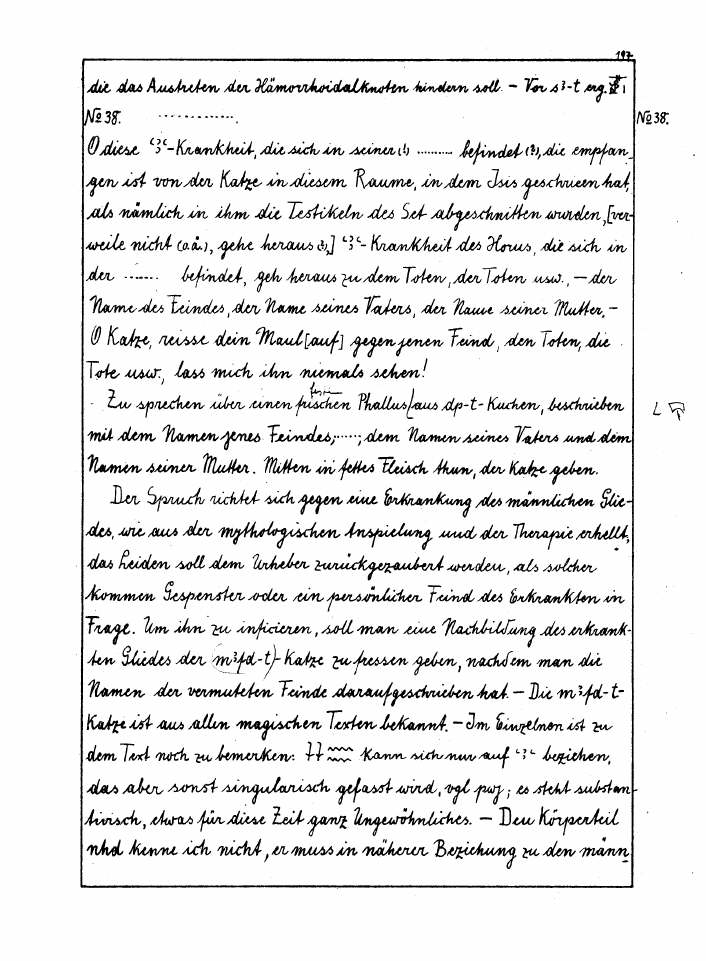 197.
die das Austreten der Hämorrhoidalknoten hindern soll. – Vor s3-t erg.
No 38. .............. No 38.
O diese ꜥ3ꜥ-Krankheit, die sich in seiner (!) .......... befindet (?), die empfan-
gen ist von der Katze in diesem Raume, in dem Isis geschrieen hat,
als nämlich in ihm die Testikeln des Set abgeschnitten wurden, [ver-
weile nicht (o.ä.), gehe heraus (?),] ꜥ3ꜥ-Krankheit des Horus, die sich in
der ....... befindet, geh heraus zu dem Toten, der Toten usw., – der
Name des Feindes, der Name seines Vaters, der Name seiner Mutter. –
O Katze, reisse dein Maul [auf] gegen jenen Feind, den Toten, die
Tote usw., lass mich ihn niemals sehen!
Zu sprechen über einen frischen Phallus aus dp-t-Kuchen, beschrieben
mit dem Namen jenes Feindes, ....., dem Namen seines Vaters und dem
Namen seiner Mutter. Mitten in fettes Fleisch thun, der Katze geben.
Der Spruch richtet sich gegen eine Erkrankung des männlichen Glie-
des, wie aus der mythologischen Anspielung und der Therapie erhellt,
das Leiden soll dem Urheber zurückgezaubert werden, als solcher
kommen Gespenster oder ein persönlicher Feind des Erkrankten in
Frage. Um ihn zu inficieren, soll man eine Nachbildung des erkrank-
ten Gliedes der (m3fd-t)-Katze zu fressen geben, nachdem man die
Namen der vermuteten Feinde daraufgeschrieben hat. – Die m3fd-t-
Katze ist aus allen magischen Texten bekannt. – Im Einzelnen ist zu
dem Text noch zu bemerken: kann sich nur auf ꜥ3ꜥ beziehen,
das aber sonst singularisch gefasst wird, vgl pwj; es steht substan-
tivisch, etwas für diese Zeit ganz Ungewöhnliches. – Den Körperteil
nhd kenne ich nicht, er muss in näherer Beziehung zu den männ